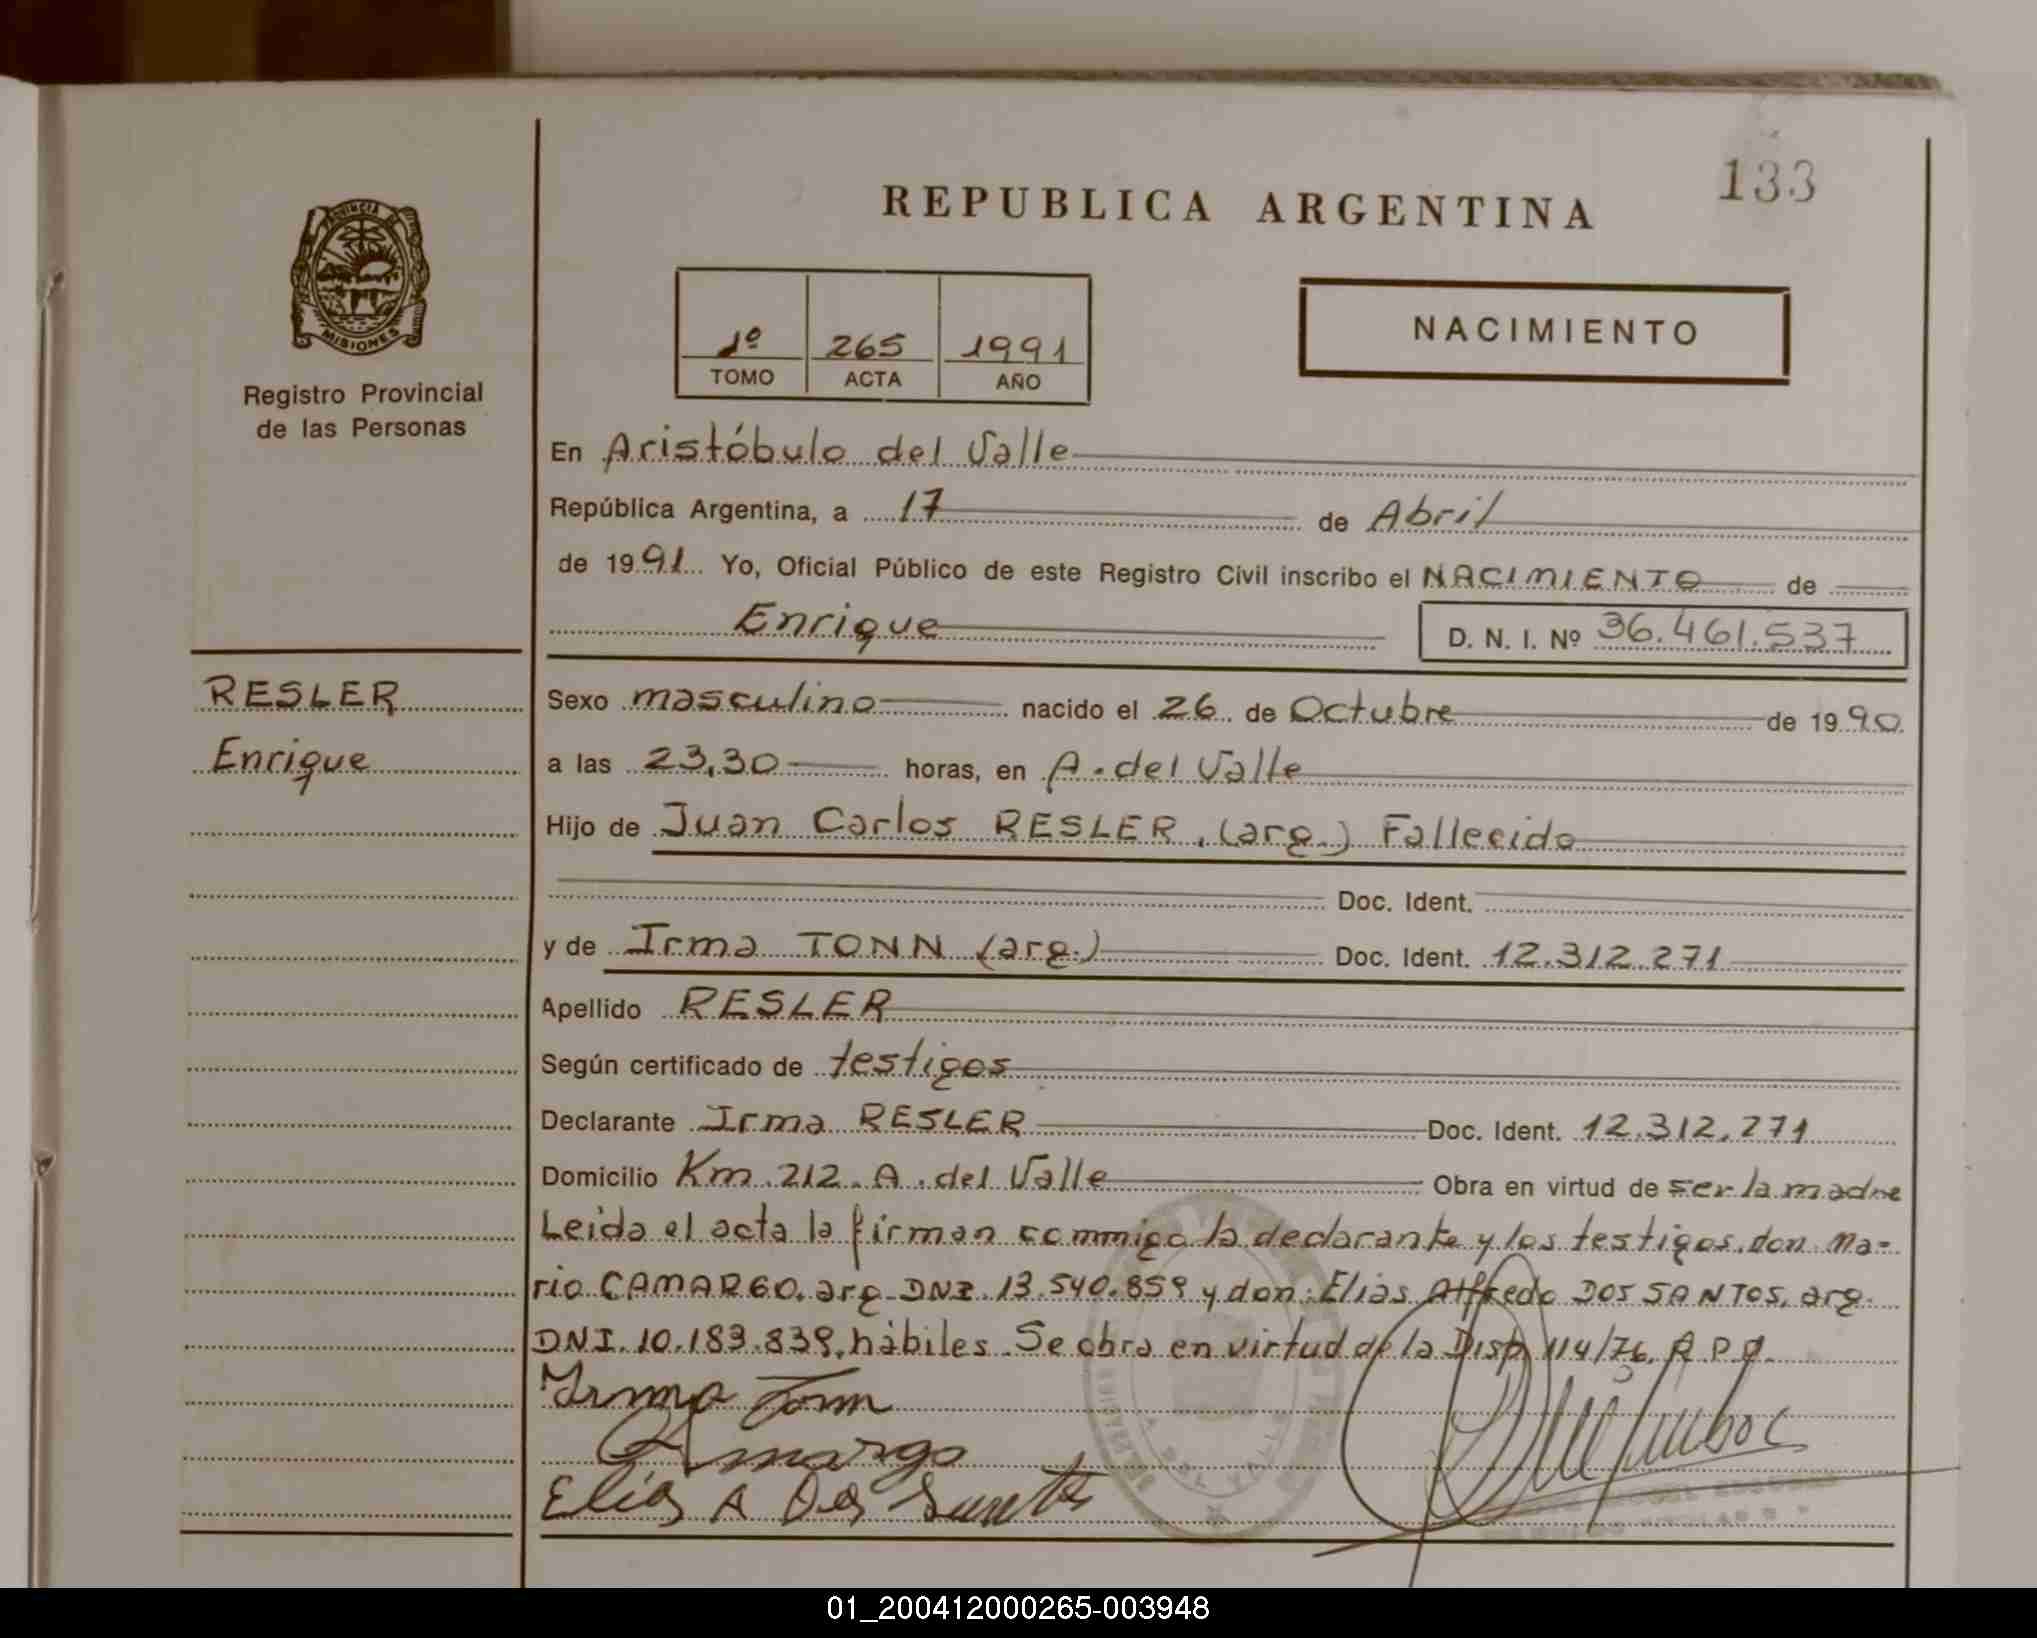 133
REPUBLICA ARGENTINA
PROVINCIA DE
MISIONES
Registro Provincial
de las Personas
1º 265 1991
TOMO ACTA AÑO
NACIMIENTO
En Aristóbulo del Valle
República Argentina, a 17 de Abril
de 1991 Yo, Oficial Público de este Registro Civil inscribo el NACIMIENTO de
Enrique D. N. I. Nº 36.461.537
RESLER
Enrique
Sexo masculino nacido el 26 de Octubre de 1990
a las 23,30 horas, en A. del Valle
Hijo de Juan Carlos RESLER, (arg.) Fallecido
Doc. Ident.
y de Irma TONN (arg.) Doc. Ident. 12.312.271
Apellido RESLER
Según certificado de testigos
Declarante Irma RESLER Doc. Ident. 12.312.271
Domicilio Km. 212. A. del Valle Obra en virtud de ser la madre
Leida el acta la firman commigo la declarante y los testigos, don Ma-
rio CAMARGO, arg. DNI. 13.540.859 y don: Elias Alfredo DOS SANTOS, arg.
DNI. 10.183.839, hábiles. Se obra en virtud de la Disp. 114/76. R.P.P.
Irma Tonn
Camargo
Elias A Dos Santos
01_200412000265-003948